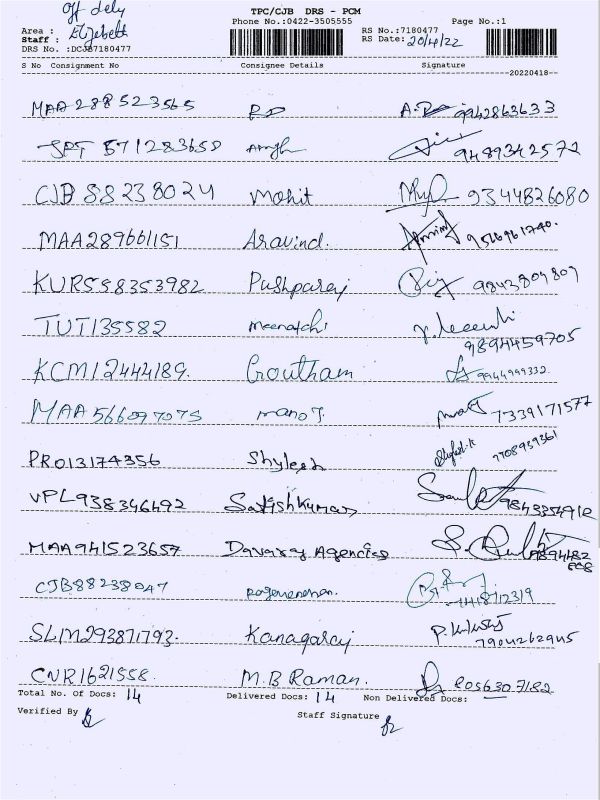 off dely
TPC/CJB DRS - PCM
Area : Elizebeth Phone No.:0422-3505555 RS No.:7180477 Page No.:1
Staff : RS Date: 20/4/22
DRS No. :DCJB7180477
S No Consignment No Consignee Details Signature
20220418
MAA 288523565 9942863633
571283658 9489342572
CJB 88238024 Mohit 9344826080
MAA289661151 Aravind. 9566961740.
KUR558353982 Pushparaj 9843809809
TUT135582 meenatchi 9894459705
KCM12444189. Goutham 9944999332
MAA 566097075 manoj. 7339171577
PRO13174356 Shylesh 7708939361
VPL938346492 Satishkumar 9843354912
MAA941523657 Davaraj Agencies
CJB88238047
SLM293871793. Kanagaraj 7904262945
CNR1621558. M.B Raman.
Total No. Of Docs: 14 Delivered Docs: 14 Non Delivered Docs:
Verified By Staff Signature